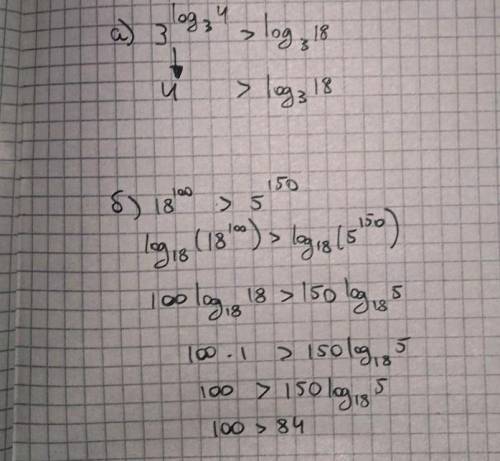 а) 3^log₃4 > log₃18
4 > log₃18
б) 18¹⁰⁰ > 5¹⁵⁰
log₁₈(18¹⁰⁰) > log₁₈(5¹⁵⁰)
100 log₁₈18 > 150 log₁₈5
100 · 1 > 150 log₁₈5
100 > 150 log₁₈5
100 > 84